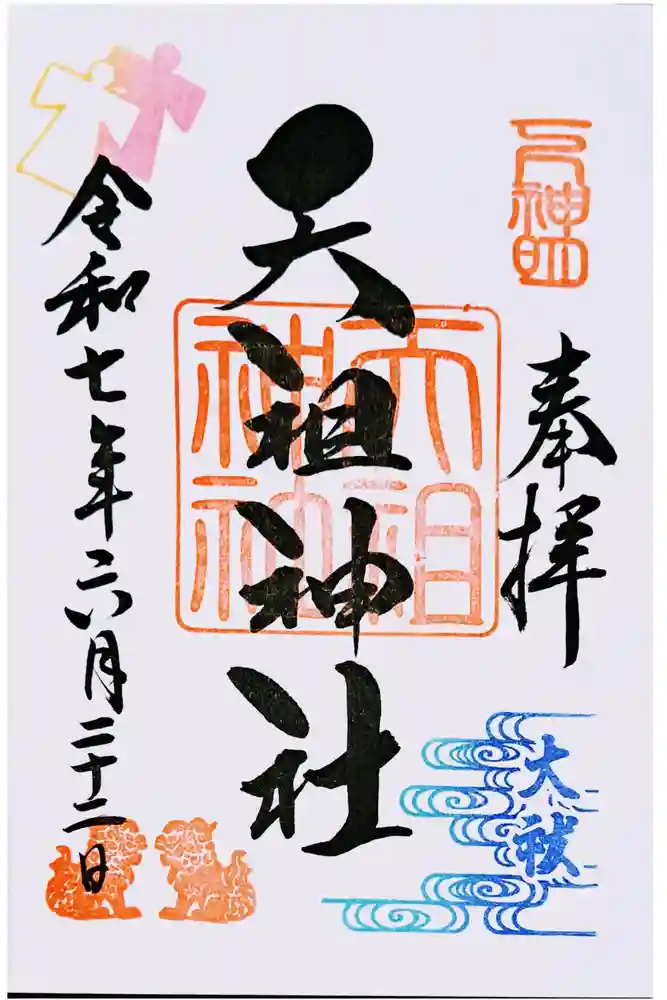 元神明
奉拝
大祓
天祖神社
天祖神社
令和七年六月二十二日